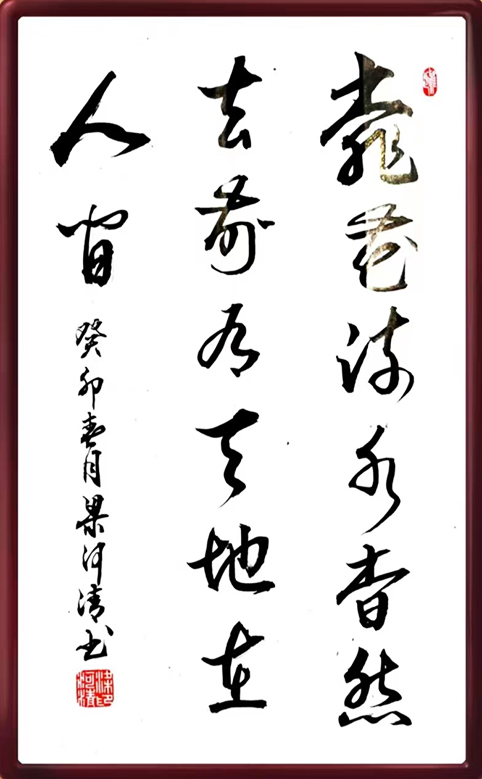 桃花流水杳然
去别有天地在
人間
癸卯春月梁清书